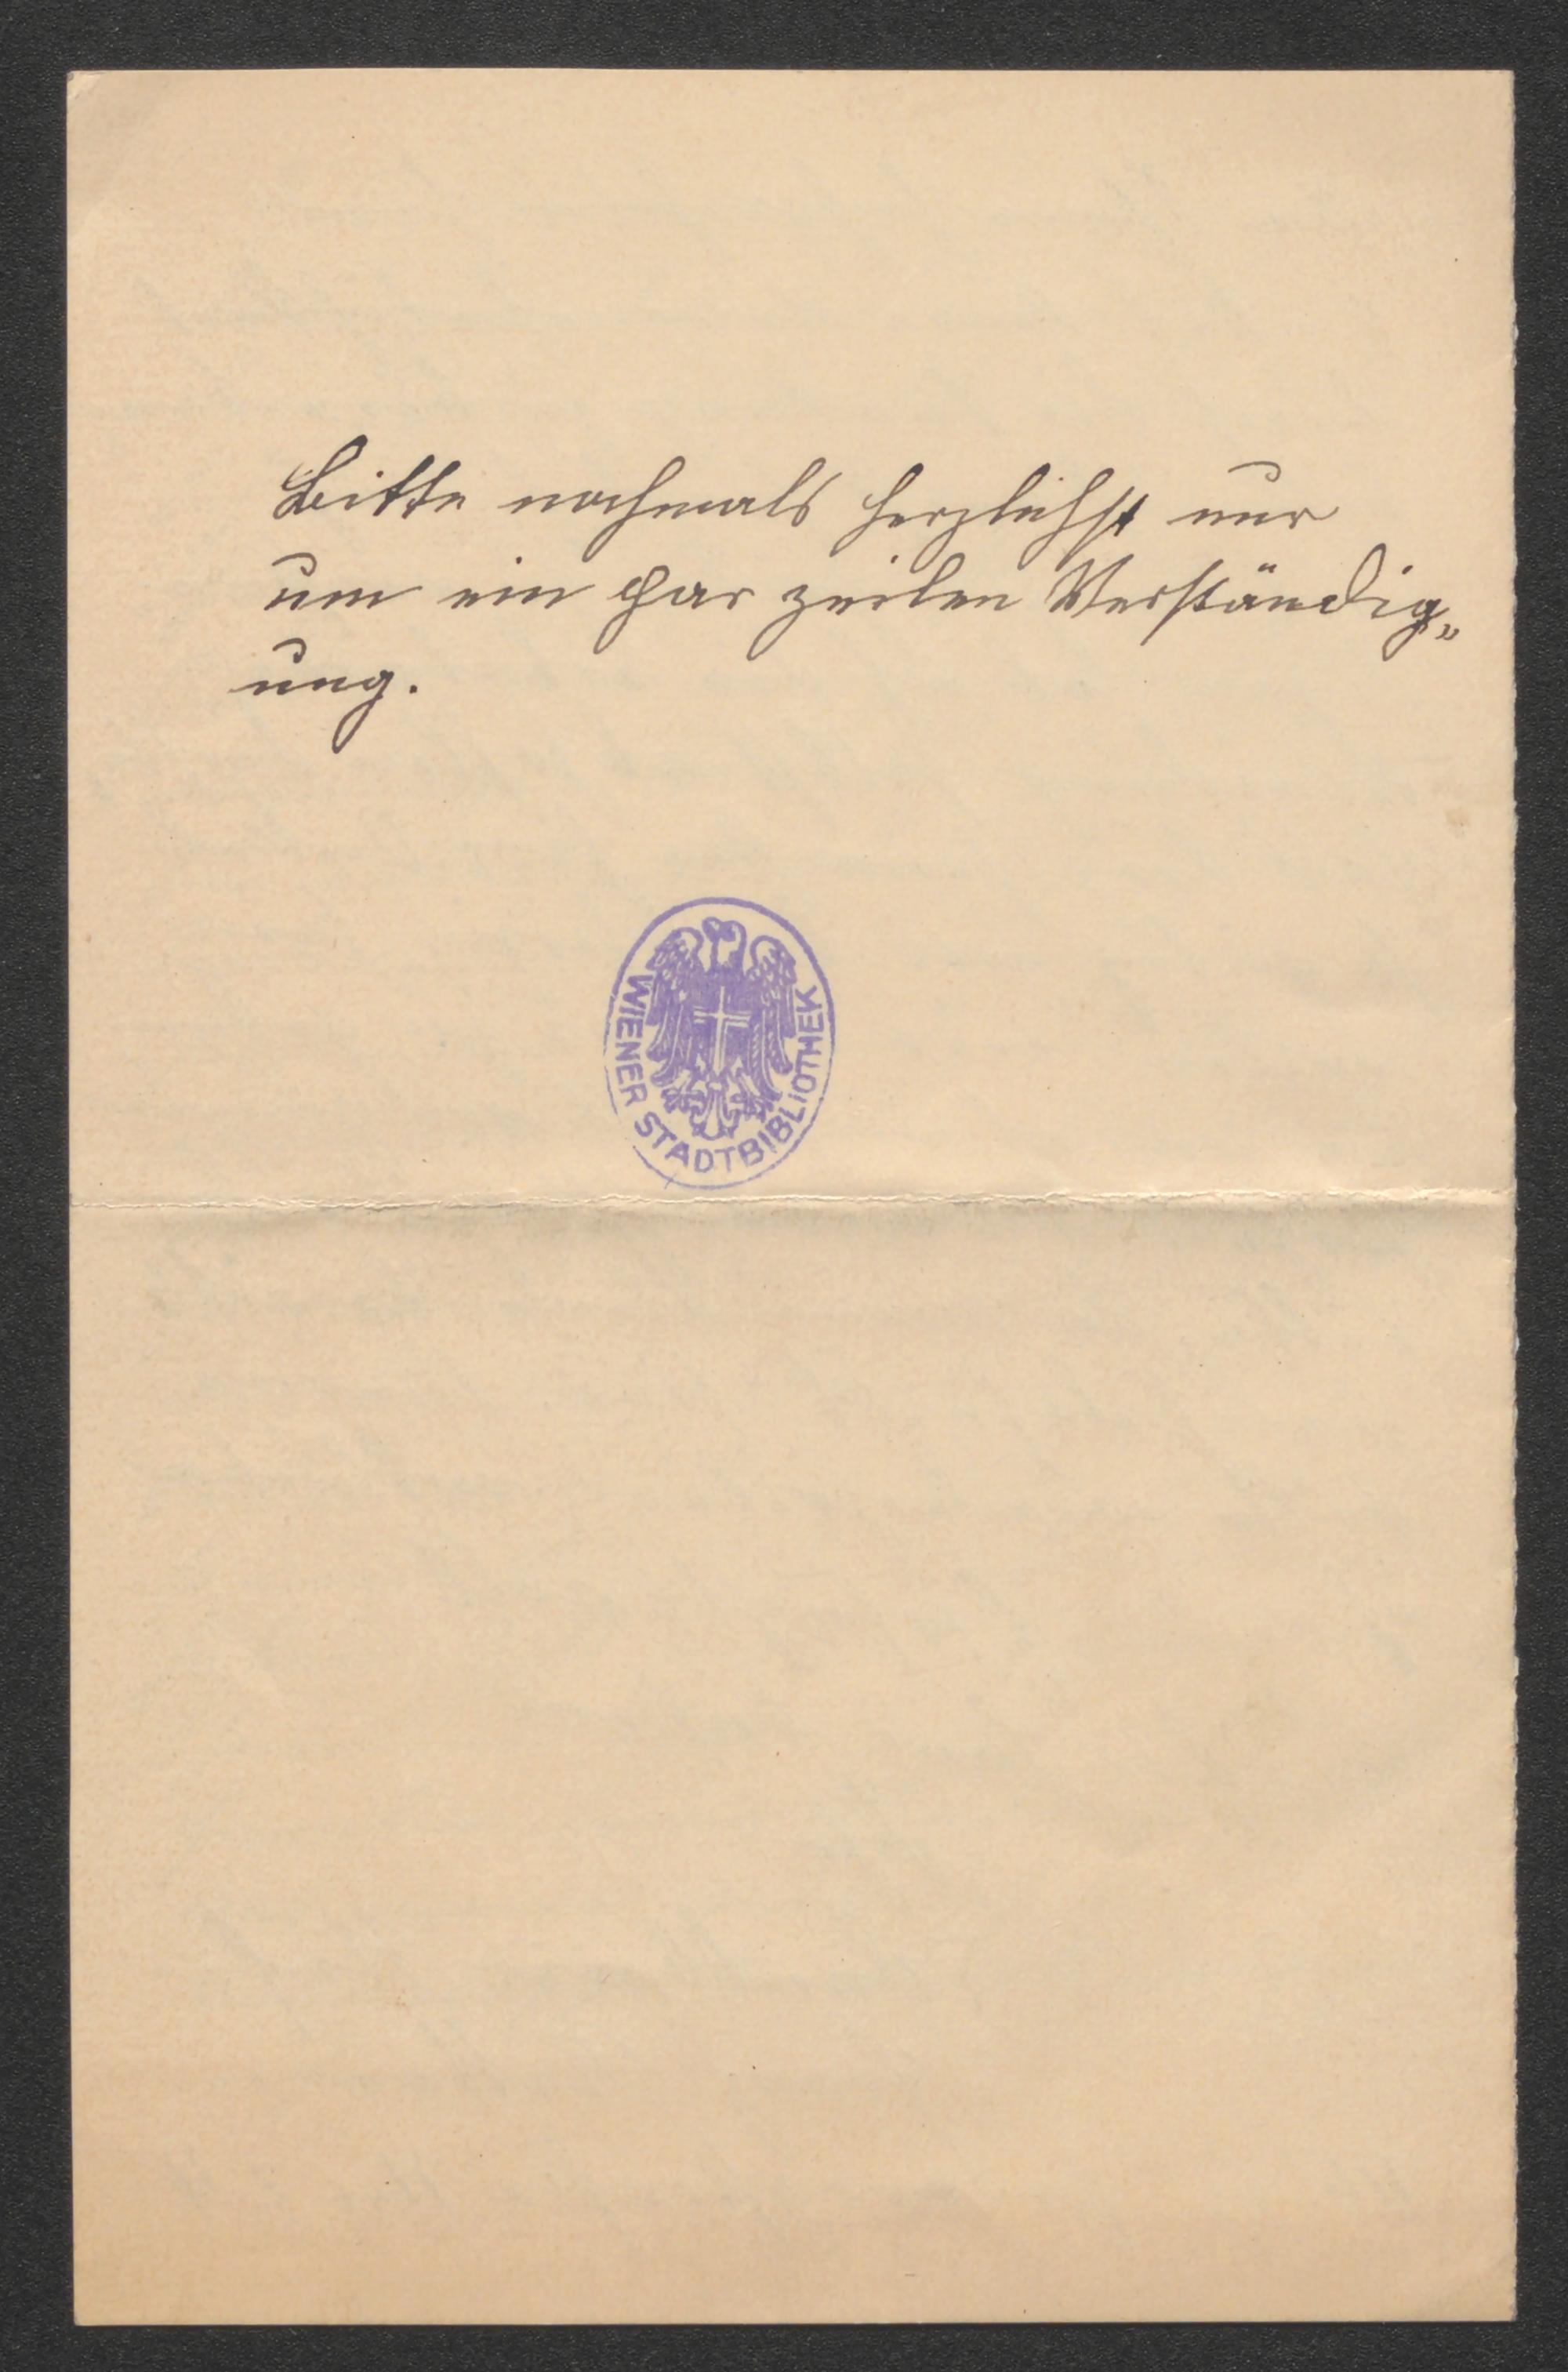 Bitte nochmals herzlichst nur
um ein par zeilen Verständig„
ung.
WIENER STADTBIBLIOTHEK